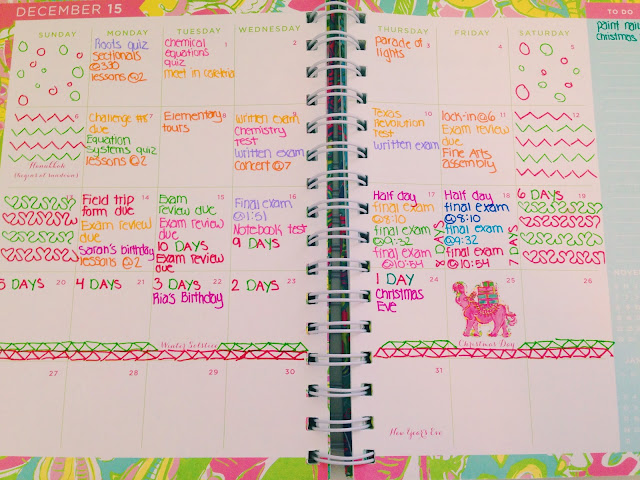 DECEMBER 15
TO DO
SUNDAY
MONDAY
TUESDAY
WEDNESDAY
THURSDAY
FRIDAY
SATURDAY
Roots quiz
sectionals
@330
lessons @2
1
chemical
equations
quiz
meet in cafeteria
2
3
parade of
lights
4
5
paint nails
christmas
6
Hanukkah
(Begins at Sundown)
7
Challenge #5
due
Equation
Systems quiz
lessons @2
8
Elementary
tours
9
written exam
Chemistry
test
written exam
concert @7
10
Texas
Revolution
Test
written exam
11
lock-in @6
Exam review
due
Fine Arts
assembly
12
14
Field trip
form due
Exam review
due
Sarah's birthday
lessons @2
15
Exam
review due
Exam review
due
10 DAYS
Exam review
due
16
Final exam
@1:51
Notebook test
9 DAYS
17
Half day
final exam
@8:10
final exam
@9:32
final exam
@10:54
8 DAYS
18
Half day
final exam
@8:10
final exam
@9:32
final exam
@10:54
7 DAYS
19
6 DAYS
20
5 DAYS
21
4 DAYS
22
3 DAYS
Ria's Birthday
Winter Solstice
23
2 DAYS
24
1 DAY
Christmas
Eve
25
Christmas Day
26
27
28
29
30
31
New Year's Eve